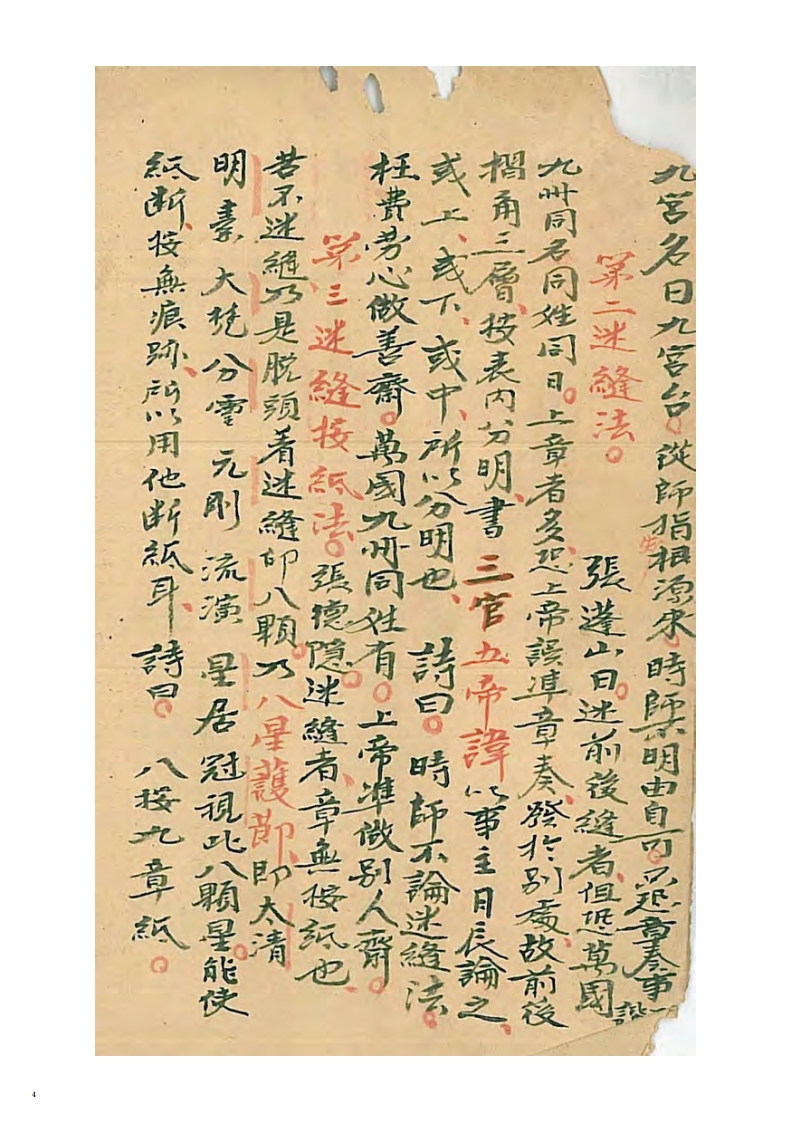 九宮名曰九宮台。從師指根源來 時師不明由自可。只恐章奏事一
誤
第二迷縫法。
張蓬山曰迷前後縫者、但恐萬國
九州同名同姓同日。上章者多、恐上帝誤準章奏、發於別處、故前後
摺角三層、按表内分明、書 三官五帝諱 以事主月辰論之、
或上、或下、或中、所以分明也、 詩曰。 時師不論迷縫法。
枉費勞心做善齋。萬國九州同姓有。上帝準做別人齋。
第三迷縫接紙法。張德隱。迷縫者章無接紙也、
若不迷縫乃是脫頭着迷縫印八顆。乃八星護節、即太清
明素 大梵 分靈 元剛 流演 星居 冠視 此八顆星。能使
紙断、接無痕跡、所以用他断紙耳、 詩曰。 八接九章紙。
4